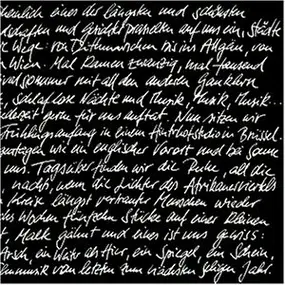 heinlich eines der längsten und schönsten
dschaften und Gesichter prasseln auf uns ein, Städte
r Wege: von Dithmarschen bis ins Allgäu, von
Wien. Mal Damen zwanzig, mal tausend
valsommer mit all den andern Gauklern
, Schlaflose Nächte und Musik, Musik, Musik...
derzeit gern für uns auftut. Nun sitzen wir
Frühlingsanfang in einem Hinterhofstudio in Brüssel.
wie ein englischer Vorort und bei Sonne
uns. Tagsüber finden wir die Ruhe, all die
nachts, wenn die Lichter des Afrikanerviertels
Kreis längst vertrauter Menschen wieder
chs Wochen fünfzehn Stücke auf einer kleinen
t, Maik gähnt und eines ist uns gewiss:
Arsch, ein Vater als Hier, ein Spiegel, ein Schein,
musik vom letzten zum nächsten seligen Jahr.